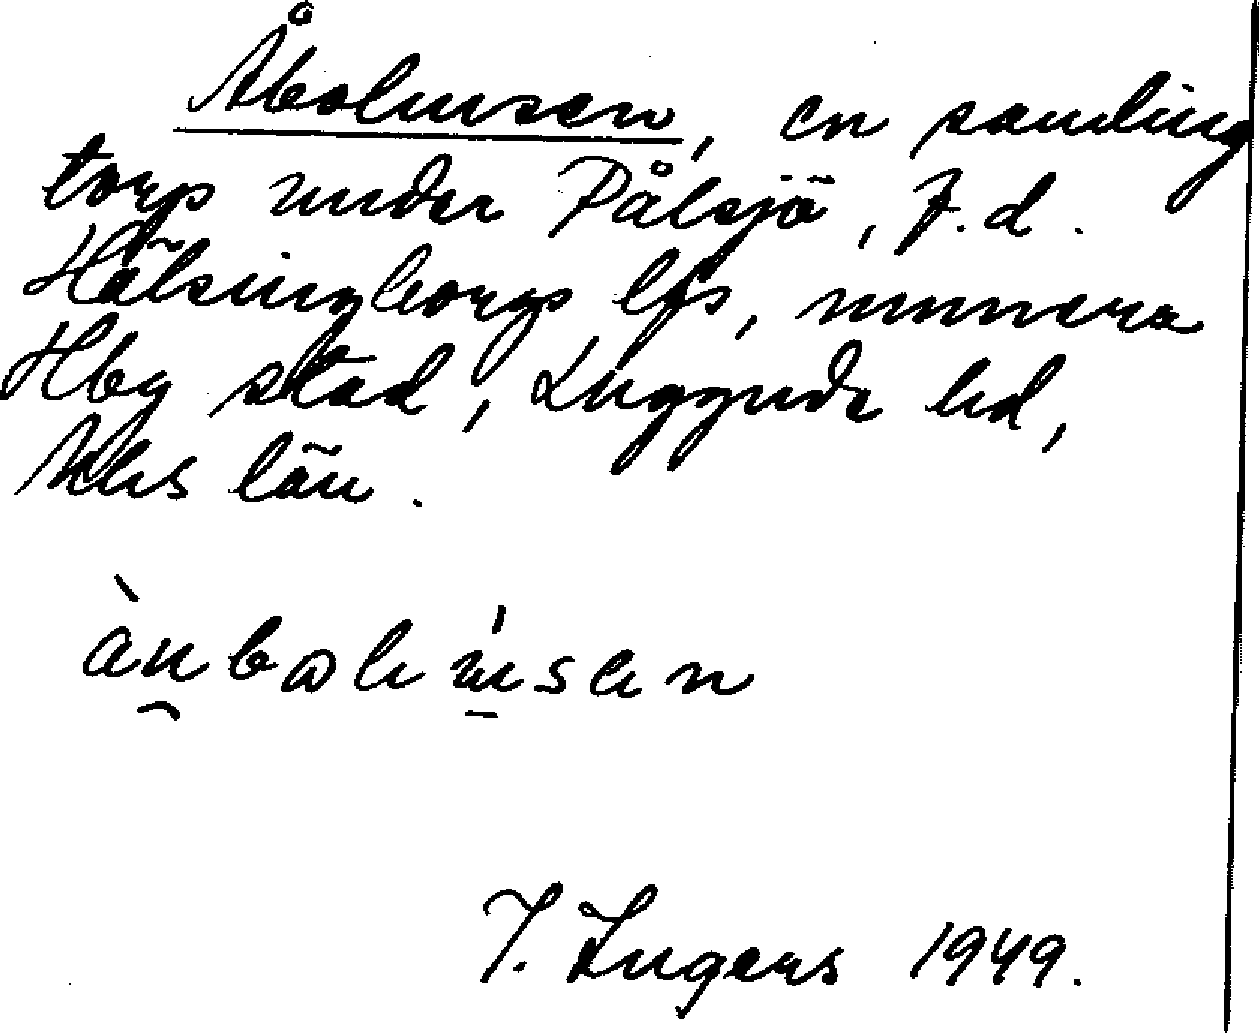 Åbolmsen, en samling
torp under Pålsjö, f.d.
Hälsingborgs lfs, numera
Hbg stad, Luggude hd,
Mhs län.
1949.